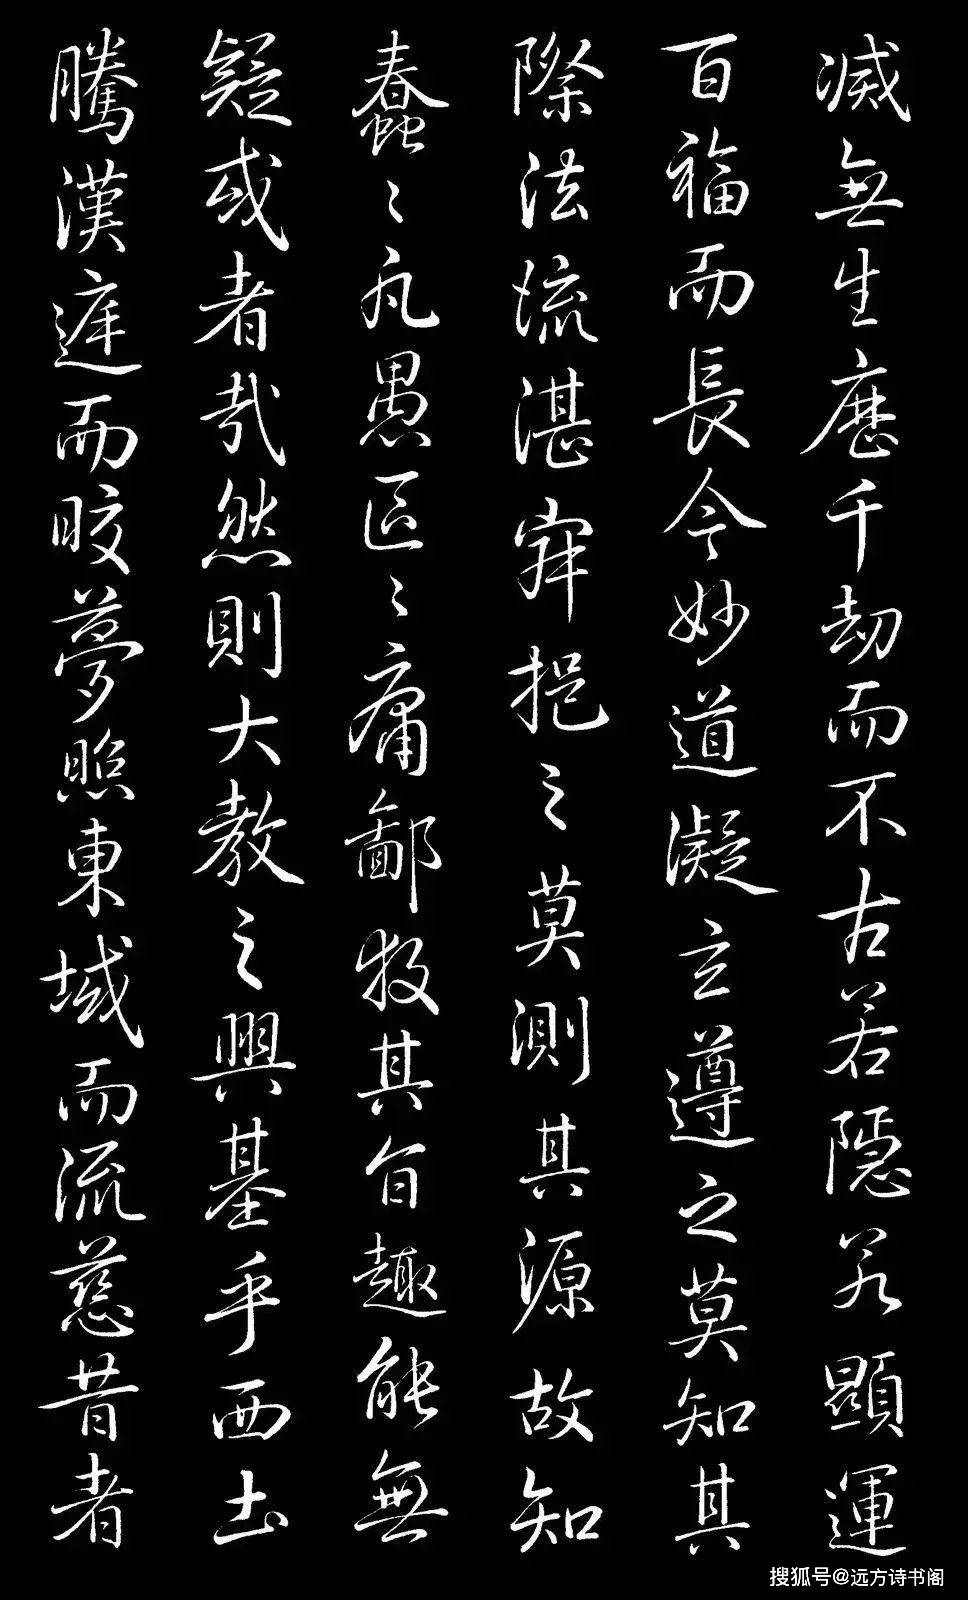 滅無生歷千劫而不古若隱若顯運
百福而長今妙道凝玄遵之莫知其
際法流湛寂挹之莫測其源故知
蠢々凡愚區々庸鄙投其旨趣能無
疑或者哉然則大教之興基乎西土
騰漢庭而皎夢照東域而流慈昔者
搜狐号@远方诗书阁